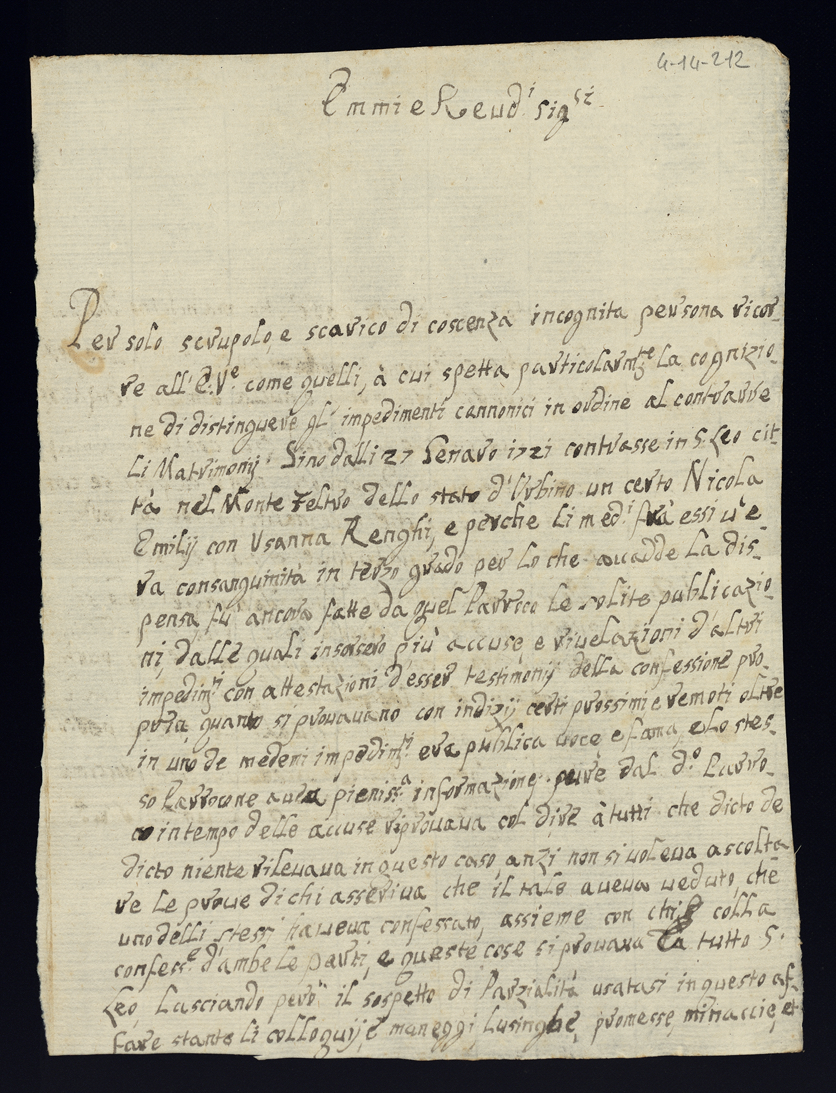 4-14-212
Emmi e Reud.i sig.ri
Per solo scrupolo, e scarico di coscenza incognita persona ricor-
re all'E.Ve come quelli, à cui spetta particolarmte la cognizio-
ne di distinguere gl' impedimenti cannonici in ordine al contrarre
Li Matrimonij. Sino dalli 27 Genaro 1721 contrasse in S. Leo cit-
tà nel Monte Feltro dello stato d'Urbino un certo Nicola
Emilij con Usanna Renghi, e perche li med.i frà essi u'e-
ra consanguinità in terzo grado per lo che accadde la dis-
pensa, fù ancora fatte da quel Parroco le solite publicazio-
ni, dalle quali insorsero più accuse, e riuelazioni d'altri
impedim.ti con attestazioni d'esser testimonij della confessione pro-
pria, quanto si prouauano con indizij certi prossimi e remoti oltre
in uno de medemi impedim.ti era publica uoce e fama, e lo stes-
so Parrocone aueua pieniss.a informazione. pure dal d.o Parro-
co in tempo delle accuse riprouaua col dire à tutti che dicto de
dicto niente rileuaua in questo caso, anzi non si uoleua ascolta
re le proue di chi asseriua che il tale aueua ueduto, che
uno delli stessi haueua confessato, assieme con colla
confess.e d'ambe le parti, e queste cose si prouaua da tutto S.
Leo, Lasciando però il sospetto di Parzialità usatasi in questo af-
fare stante li colloquij, e maneggi, lusinghe, promesse, minaccie, et